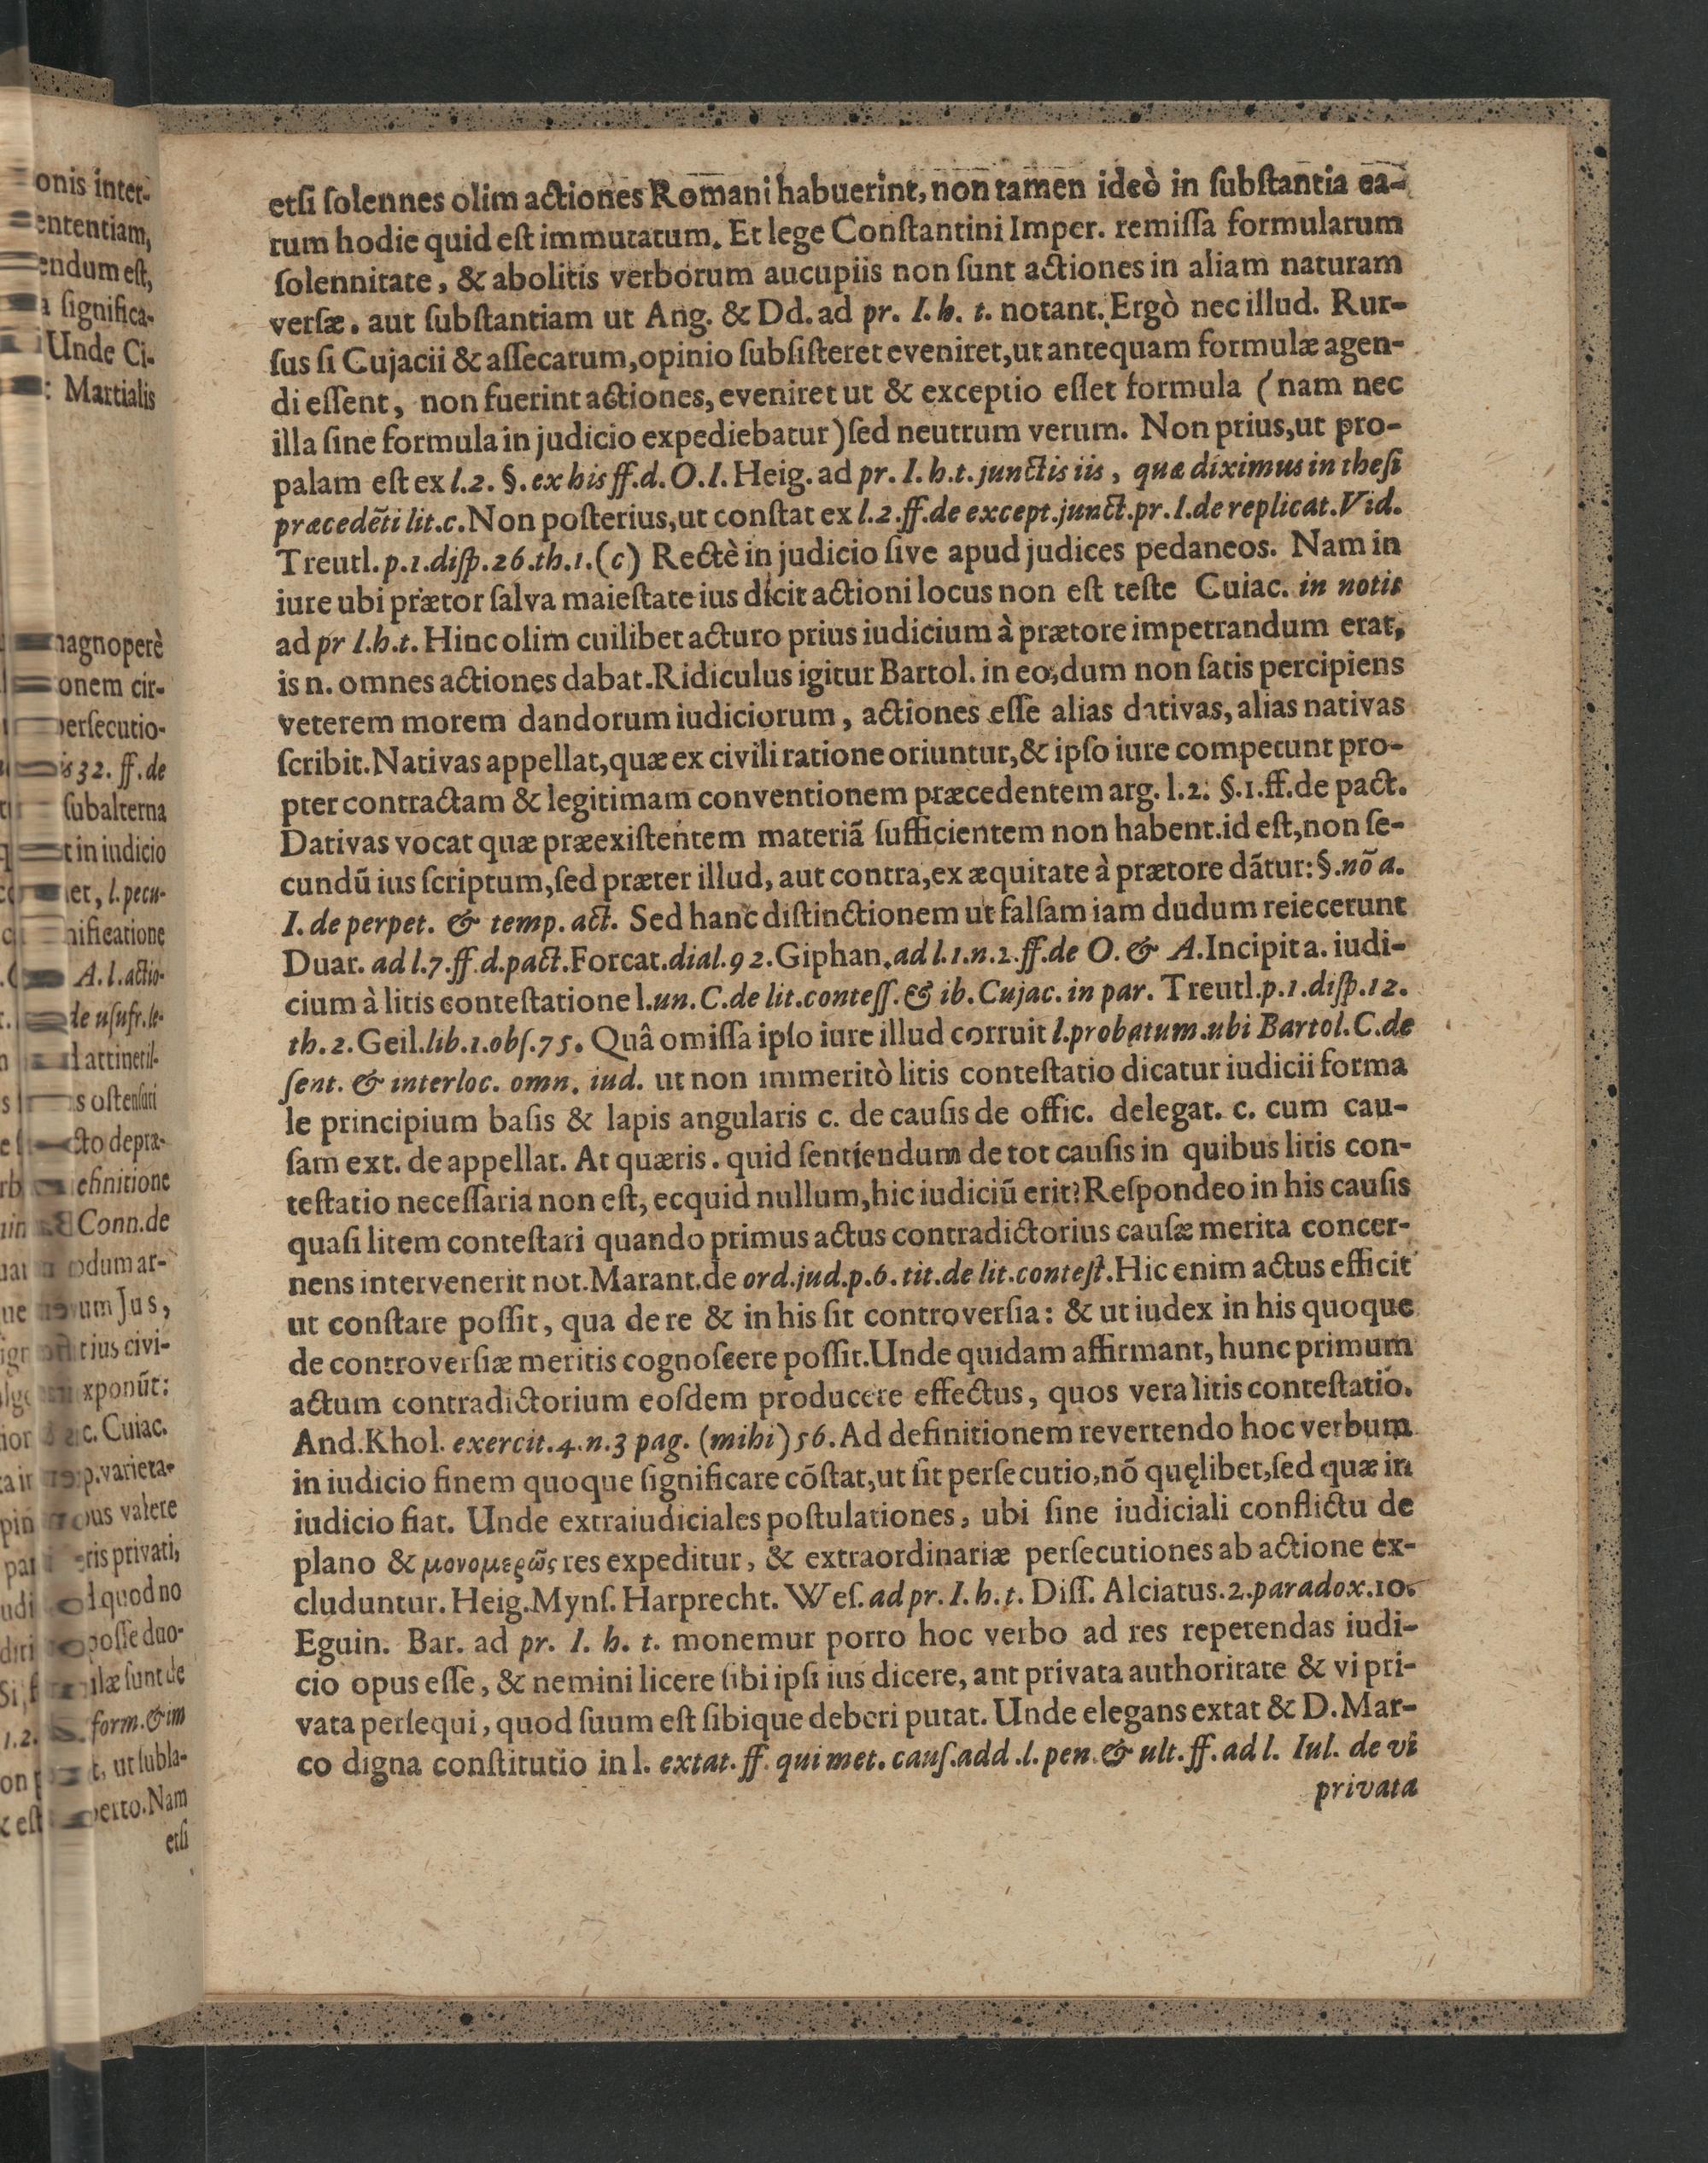 etſi ſolennes olim actiones Romani habuerint, non tamen ideò in ſubſtantia ea-
rum hodie quid eſt immutatum. Et lege Conſtantini Imper. remiſſa formularum
ſolennitate, & abolitis verborum aucupiis non ſunt actiones in aliam naturam
verſæ. aut ſubſtantiam ut Ang. & Dd. ad pr. I. h. t. notant. Ergò nec illud. Rur-
ſus ſi Cujacii & aſſecarum, opinio ſubſiſteret eveniret, ut antequam formulæ agen-
di eſſent, non fuerint actiones, eveniret ut & exceptio eſſet formula (nam nec
illa ſine formula in judicio expediebatur) ſed neutrum verum. Non prius, ut pro-
palam eſt ex l.2. §. ex his ff. d. O. I. Heig. ad pr. I. h. t. junctis iis, quæ diximus in theſi
præcedēti lit. c. Non poſterius, ut conſtat ex l.2. ff. de except. junct. pr. I. de replicat. Vid.
Treutl. p. 1. diſp. 26. th. 1. (c) Rectè in judicio ſive apud judices pedaneos. Nam in
iure ubi prætor ſalva maieſtate ius dicit actioni locus non eſt teſte Cuiac. in notis
ad pr I. h. t. Hinc olim cuilibet acturo prius iudicium à prætore impetrandum erat,
is n. omnes actiones dabat. Ridiculus igitur Bartol. in eo, dum non ſatis percipiens
veterem morem dandorum iudiciorum, actiones eſſe alias dativas, alias nativas
ſcribit. Nativas appellat, quæ ex civili ratione oriuntur, & ipſo iure competunt pro-
pter contractam & legitimam conventionem præcedentem arg. l. 2. §. 1. ff. de pact.
Dativas vocat quæ præexiſtentem materiā ſufficientem non habent. id eſt, non ſe-
cundū ius ſcriptum, ſed præter illud, aut contra, ex æquitate à prætore dātur: §. nō a.
I. de perpet. & temp. act. Sed hanc diſtinctionem ut falſam iam dudum reiecerunt
Duar. ad l. 7. ff. d. pact. Forcat. dial. 92. Giphan. ad l. 1. n. 2. ff. de O. & A. Incipit a. iudi-
cium à litis conteſtatione l. un. C. de lit. conteſſ. & ib. Cujac. in par. Treutl. p. 1. diſp. 12.
th. 2. Geil. lib. 1. obſ. 75. Quâ omiſſa ipſo iure illud corruit l. probatum. ubi Bartol. C. de
ſent. & interloc. omn. iud. ut non immeritò litis conteſtatio dicatur iudicii forma
le principium baſis & lapis angularis c. de cauſis de offic. delegat. c. cum cau-
ſam ext. de appellat. At quæris. quid ſentiendum de tot cauſis in quibus litis con-
teſtatio neceſſaria non eſt, ecquid nullum, hic iudiciū erit? Reſpondeo in his cauſis
quaſi litem conteſtari quando primus actus contradictorius cauſæ merita concer-
nens intervenerit not. Marant. de ord. jud. p. 6. tit. de lit. conteſt. Hic enim actus efficit
ut conſtare poſſit, qua de re & in his ſit controverſia: & ut iudex in his quoque
de controverſiæ meritis cognoſcere poſſit. Unde quidam affirmant, hunc primum
actum contradictorium eoſdem producere effectus, quos vera litis conteſtatio.
And. Khol. exercit. 4. n. 3 pag. (mihi) 56. Ad definitionem revertendo hoc verbum
in iudicio finem quoque ſignificare cōſtat, ut ſit perſecutio, nō quęlibet, ſed quæ in
iudicio fiat. Unde extraiudiciales poſtulationes, ubi ſine iudiciali conflictu de
plano & μονομερῶς res expeditur, & extraordinariæ perſecutiones ab actione ex-
cluduntur. Heig. Mynſ. Harprecht. Weſ. ad pr. I. h. t. Diſſ. Alciatus. 2. paradox. 10.
Eguin. Bar. ad pr. I. h. t. monemur porro hoc verbo ad res repetendas iudi-
cio opus eſſe, & nemini licere ſibi ipſi ius dicere, ant privata authoritate & vi pri-
vata perſequi, quod ſuum eſt ſibique deberi putat. Unde elegans extat & D. Mar-
co digna conſtitutio in l. extat. ff. qui met. cauſ. add. l. pen. & ult. ff. ad l. Iul. de vi
privata